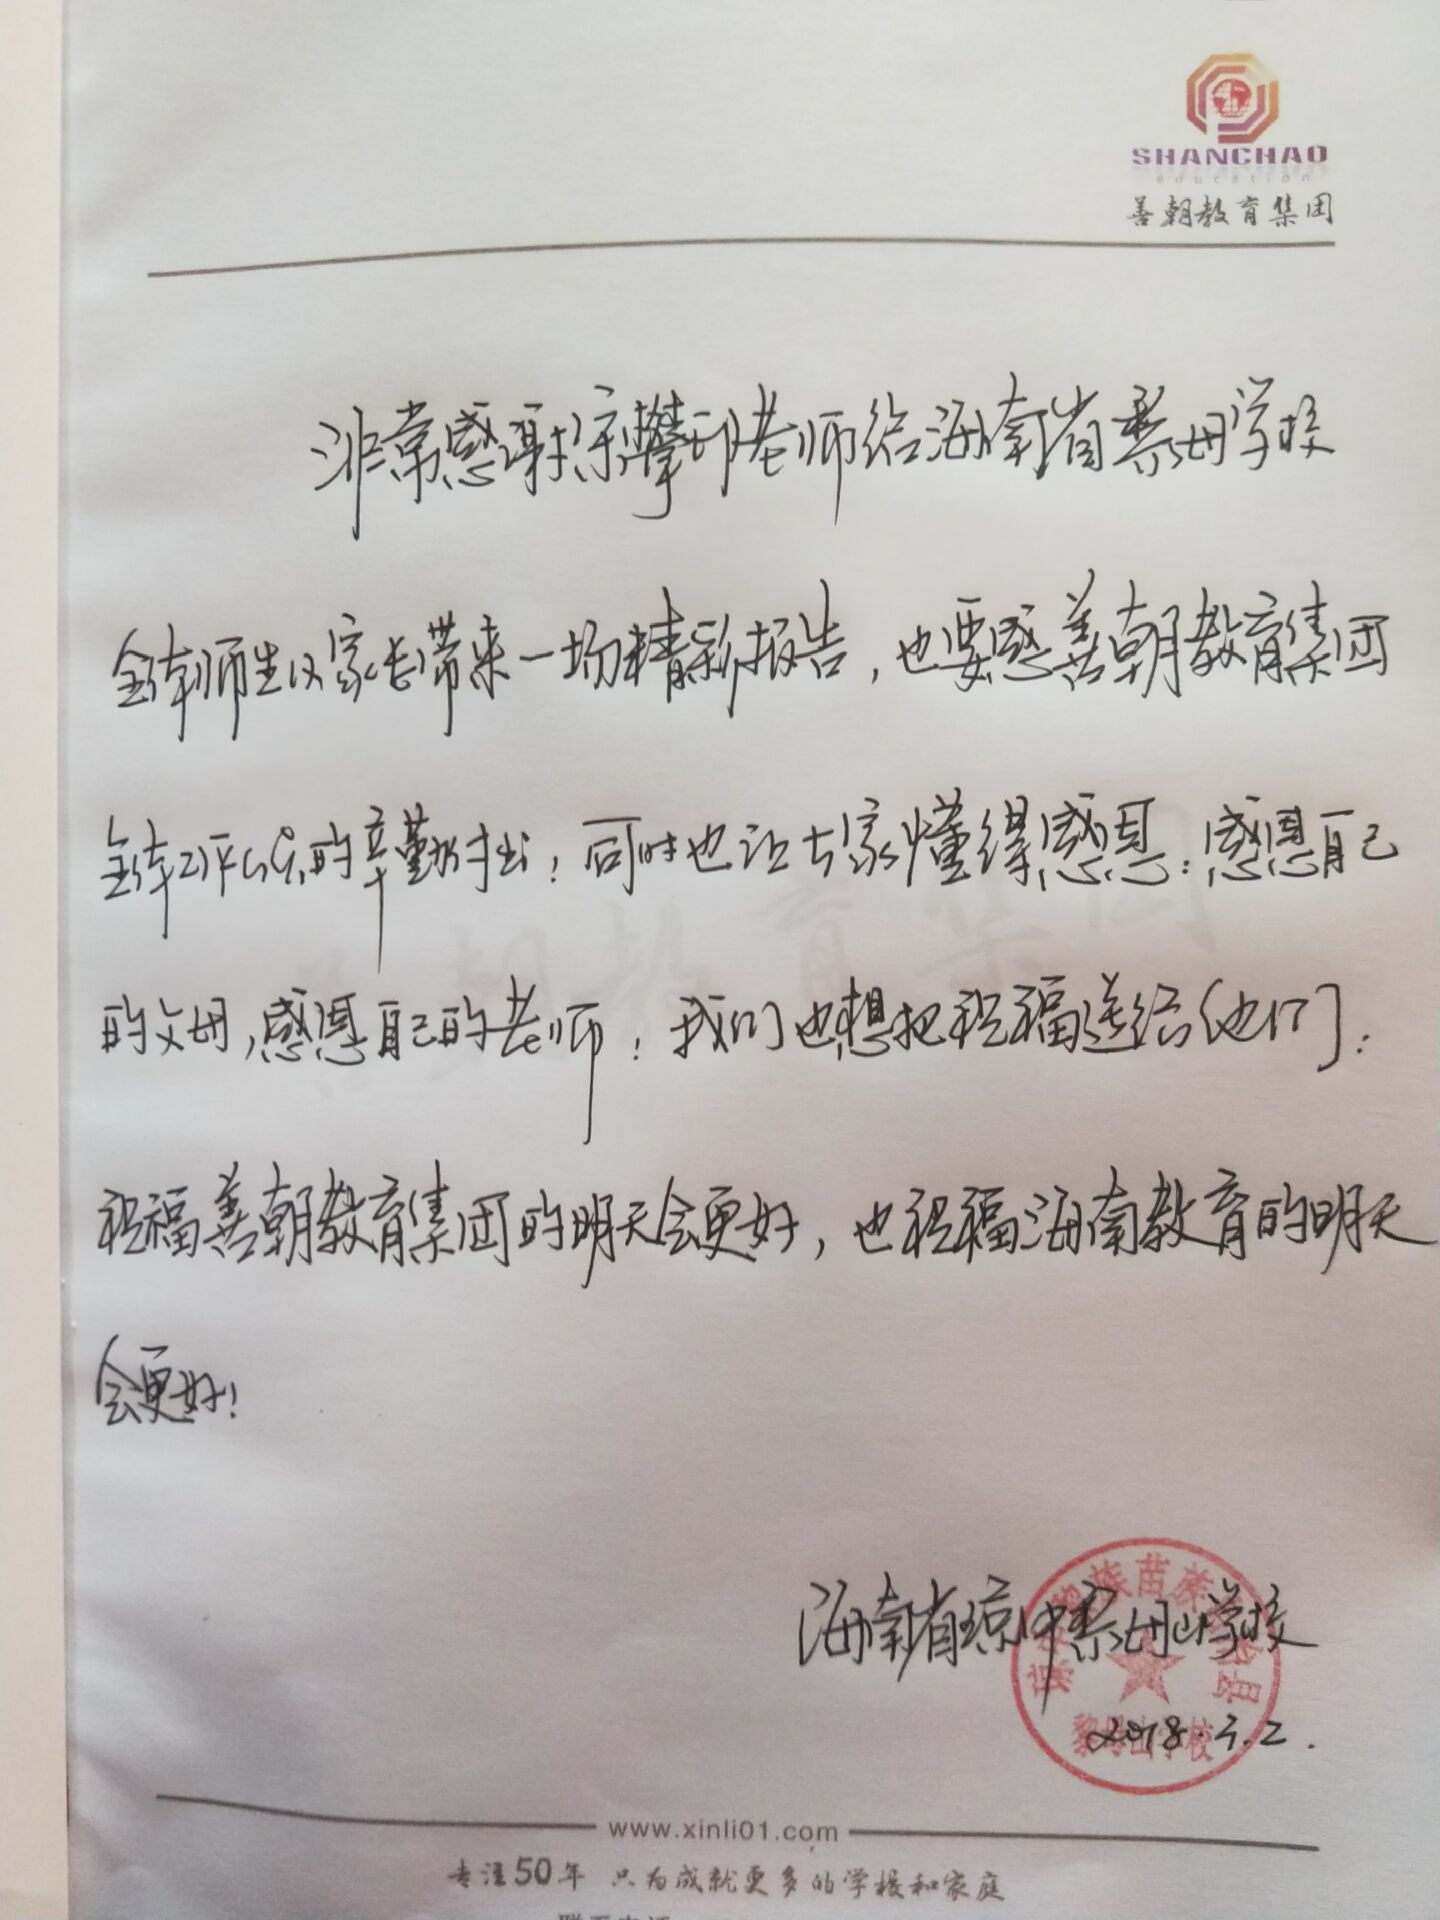 SHANCHAO
education
善朝教育集团
非常感谢攀邛老师给海南省黎母学校
全体师生以家长带来一场精彩报告，也要感善朝教育集团
全体工作人员的辛勤付出！同时也让大家懂得感恩：感恩自己
的父母，感恩自己的老师！我们也想把祝福送给他们：
祝福善朝教育集团的明天会更好，也祝福海南教育的明天
会更好！
海南省琼中黎母山学校
2018.3.2.
黎族苗族
黎母山学校
www.xinli01.com
专注50年 只为成就更多的学校和家庭